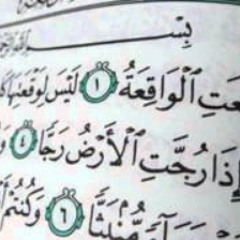 بِسْـ
ـعَتِ ٱلْوَاقِعَةُ ١ لَيْسَ لِوَقْعَتِهَا
إِذَا رُجَّتِ ٱلْأَرْضُ رَجًّا ٤
مُّنۢبَثًّا ٦ وَكُنتُمْ